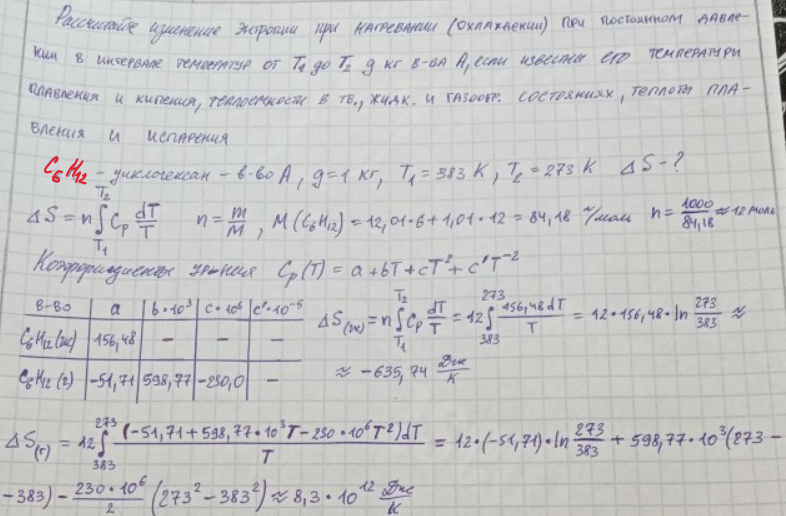 Рассчитайте изменение энтропии при нагревании (охлаждении) при постоянном давле-
нии в интервале температур от T₁ до T₂ g кг в-ва А, если известны его температуры
плавления и кипения, теплоемкости в тв., жидк. и газообр. состояниях, теплоты пла-
вления и испарения
C₆H₁₂ - циклогексан - в-во А, g = 1 кг, T₁ = 383 К, T₂ = 273 К ΔS - ?
ΔS = n∫_{T₁}^{T₂} Cp dT/T n = m/M, M(C₆H₁₂) = 12,01·6 + 1,01·12 = 84,18 г/моль n = 1000/84,18 ≈ 12 моль
Коэффициенты ур-ния Cp(T) = a + bT + cT² + c'T⁻²
в-во a b·10³ c·10⁶ c'·10⁻⁵
C₆H₁₂(ж) 156,48 - - -
C₆H₁₂(г) -51,71 598,77 -230,0 -
ΔS(ж) = n∫_{T₁}^{T₂} Cp dT/T = 12∫_{383}^{273} 156,48 dT/T = 12·156,48·ln 273/383 ≈
≈ -635,74 Дж/К
ΔS(г) = 12∫_{383}^{273} (-51,71 + 598,77·10³T - 230·10⁶T²)dT/T = 12·(-51,71)·ln 273/383 + 598,77·10³(273 -
- 383) - 230·10⁶/2 (273² - 383²) ≈ 8,3·10¹² Дж/К